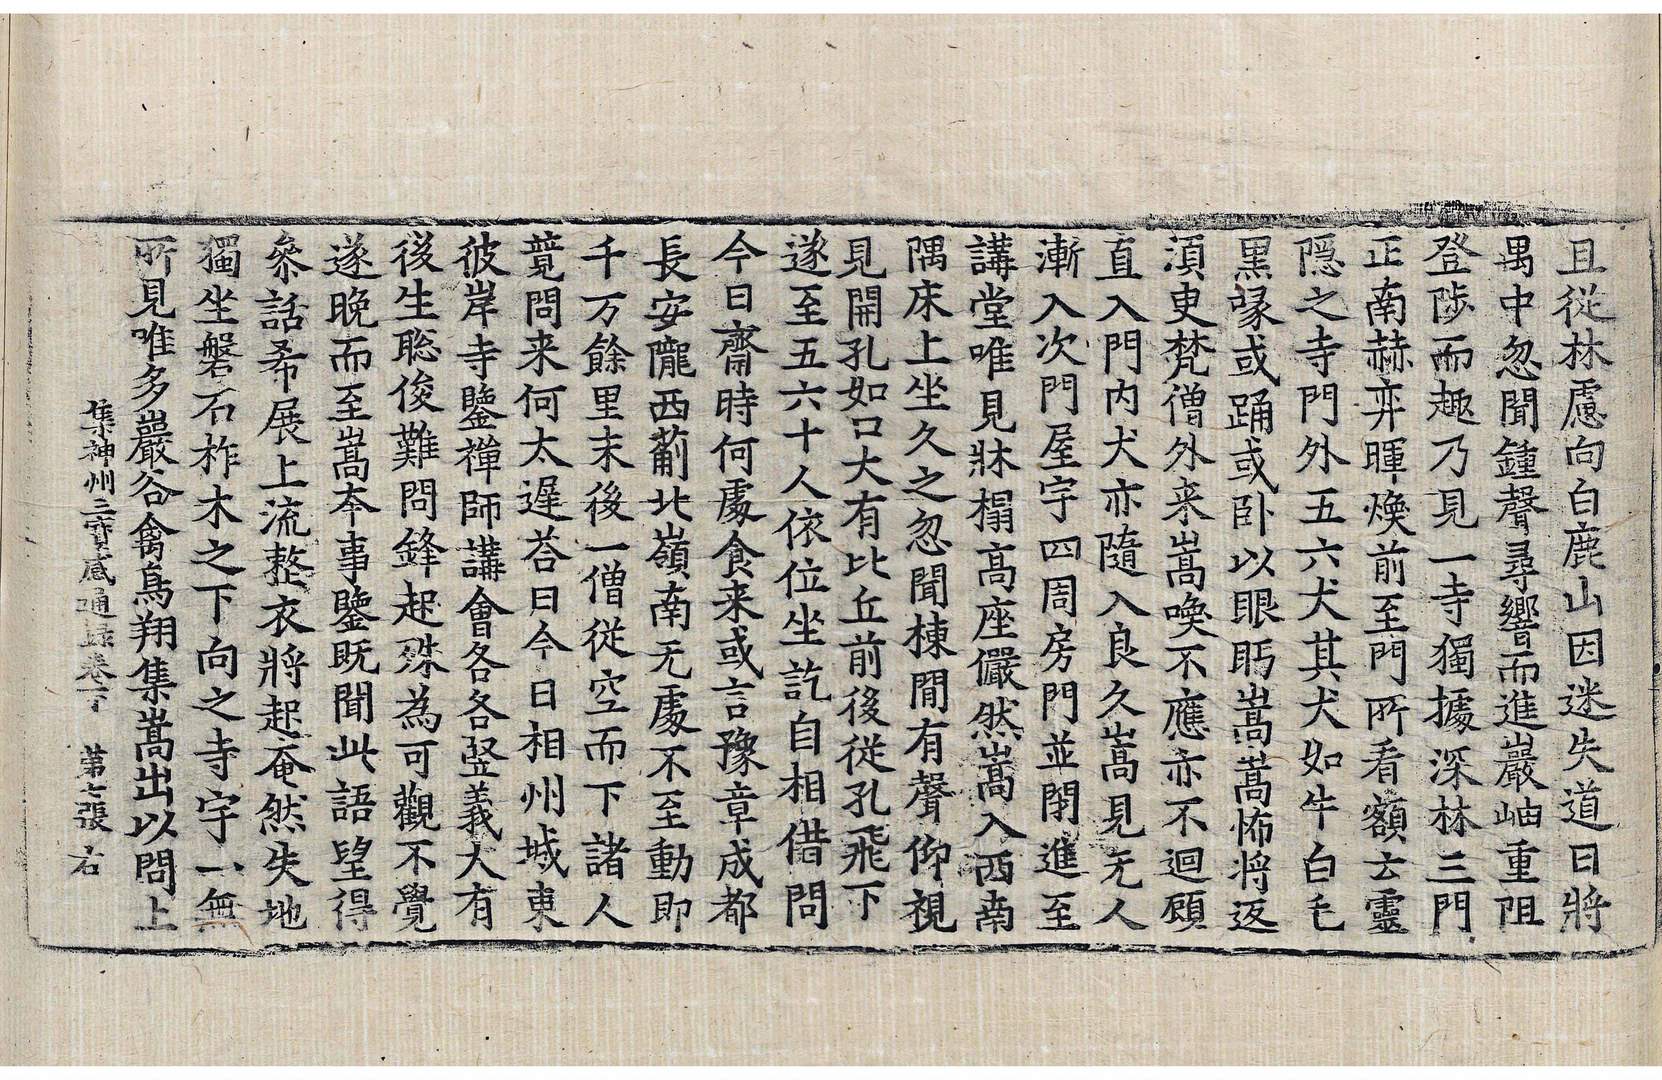 且從林慮向白鹿山因迷失道日將
禺中忽聞鍾聲尋響而進巖岫重阻
登陟而趣乃見一寺獨據深林三門
正南赫弈暉煥前至門所看額云靈
隠之寺門外五六犬其犬如牛白毛
黒喙或踊或卧以眼眄嵩嵩怖将返
湏㬰梵僧外来嵩喚不應亦不迴顧
直入門内犬亦隨入良久嵩見无人
漸入次門屋宇四周房門並閇進至
講堂唯見牀榻高座儼然嵩入西南
隅床上坐久之忽聞棟閒有聲仰視
見開孔如口大有比丘前後從孔飛下
遂至五六十人依位坐訖自相借問
今日齋時何處食来或言豫章成都
長安隴西薊北嶺南无處不至動即
千万餘里末後一僧従空而下諸人
竟問来何太遲荅曰今日相州城東
彼岸寺鑒禪師講會各各竪義大有
後生聡俊難問鋒起殊為可觀不覺
遂晚而至嵩夲事鑒旣聞此語望得
叅話希展上流整衣將起奄然失地
獨坐磐石柞木之下向之寺宇一無
所見唯多巖谷禽鳥翔集嵩出以問上
集神州三寶感通録卷下 第七張 右